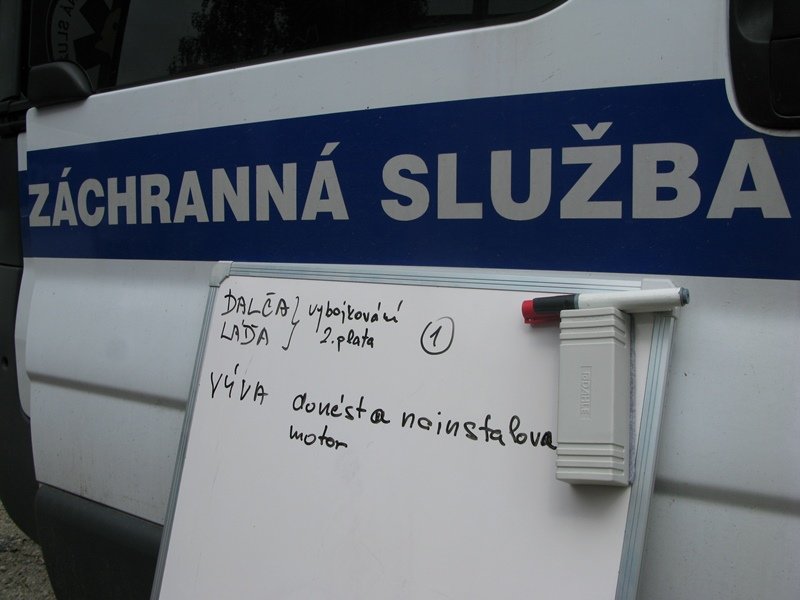 ZÁCHRANNÁ SLUŽBA
DALČA } vybojkování
LÁĎA } 2. plata
1
VÝVA donést a nainstalova
motor